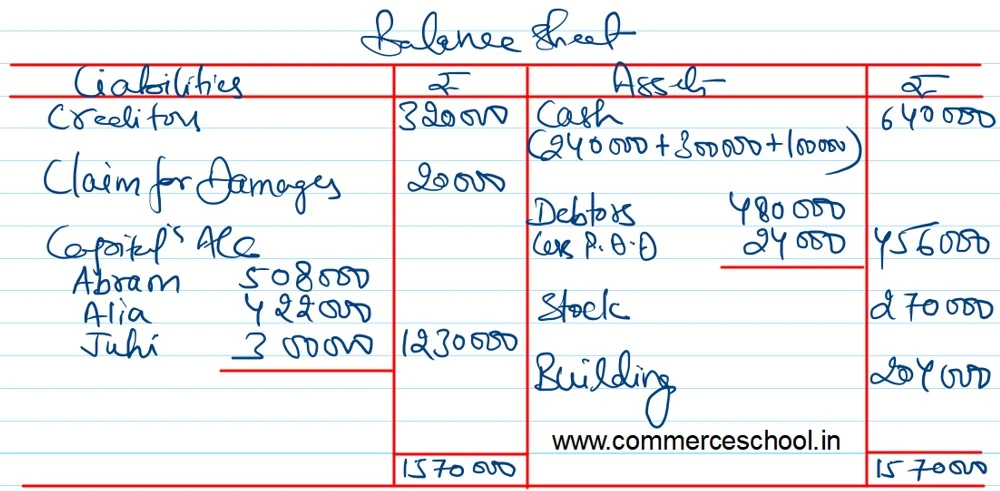 Balance Sheet
Liabilities ₹ Assets ₹
Creditors 320000 Cash 640000
(240000 + 300000 + 100000)
Claim for Damages 20000
Debtors 480000
Less P.D.D 24000 456000
Capital's A/c
Abram 508000
Alia 422000 Stock 270000
Juhi 300000 1230000
Building 204000
www.commerceschool.in
1570000 1570000